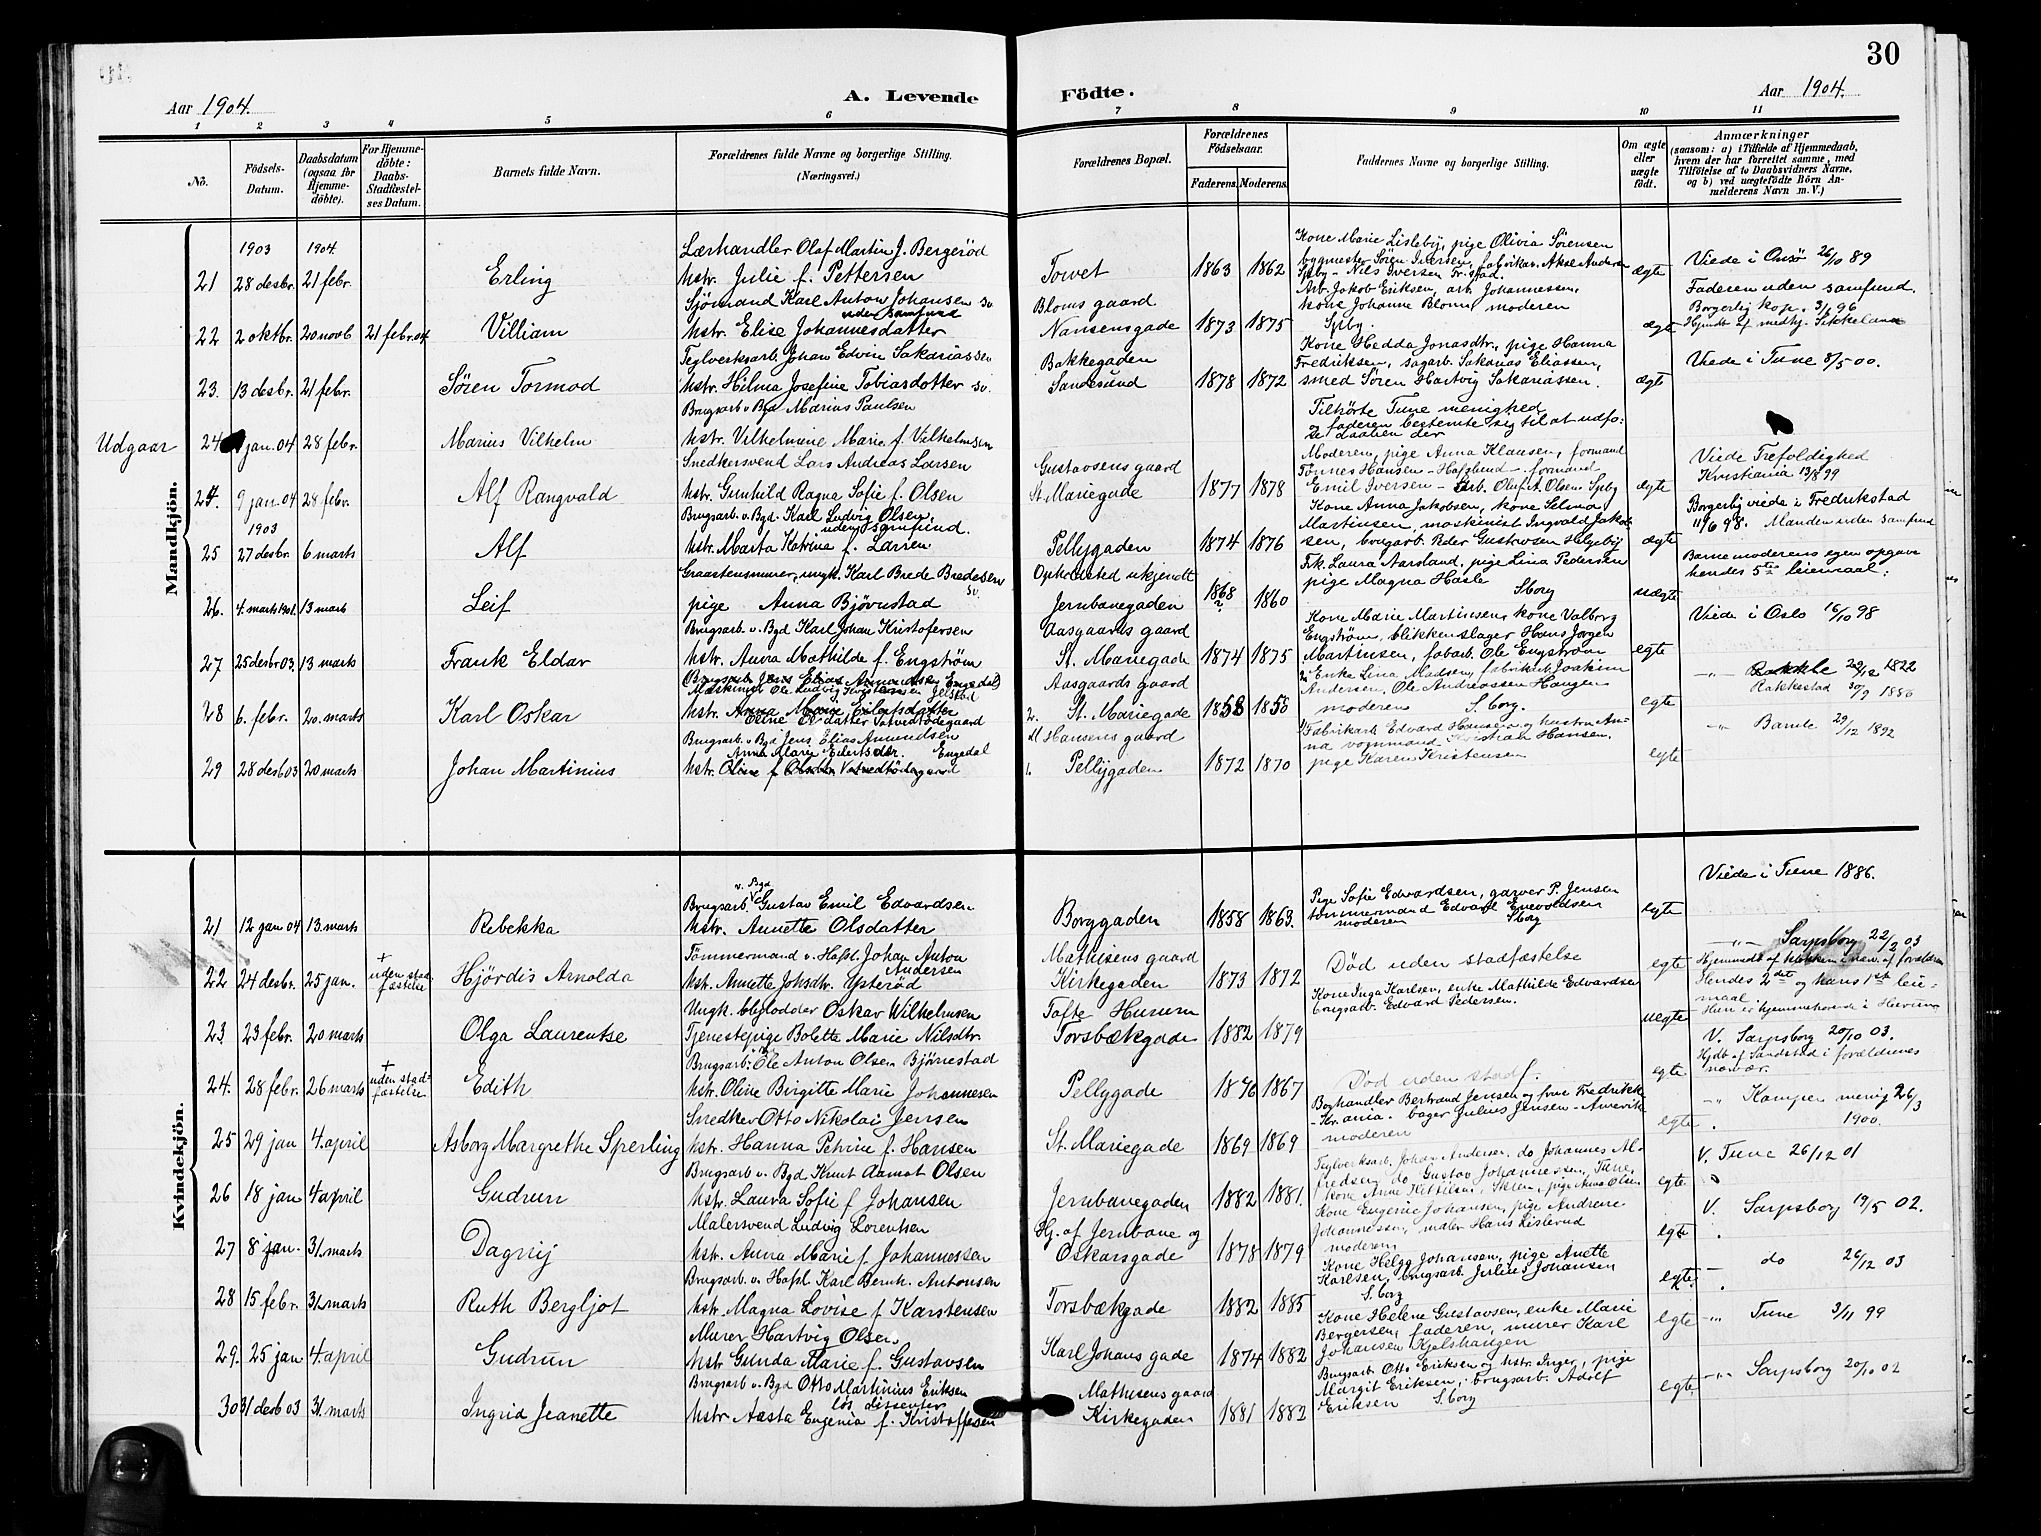 30
Aar 1904. A. Levende Födte. Aar 1904.
1 2 3 4 5 6 7 8 9 10 11
No. Födsels-Datum. Daabsdatum (ogsaa for Hjemme-döbte). For Hjemme-döbte: Daabs-Stadfæstel-ses Datum. Barnets fulde Navn. Forældrenes fulde Navne og borgerlige Stilling. (Næringsvei.) Forældrenes Bopæl. Forældrenes Födselsaar. Faderens. Moderens. Faddernes Navne og borgerlige Stilling. Om ægte eller uægte födt. Anmærkninger (saasom: a) i Tilfælde af Hjemmedaab, hvem der har forrettet samme, med Tilföielse af to Daabsvidners Navne, og b) ved uægtefödte Börn An-melderens Navn m. V.)
Mandkjön.
1903 1904
Lærhandler Olaf Martin J. Bergeröd
Kone Marie Lisleby, pige Olivia Sörensen
21 28 desbr. 21 febr. Erling hstr. Julie f. Pettersen Torvet 1863 1862 bygmester Sören Iversen, fabrikar. Aksel Andersen ægte Viede i Onsö 26/10 89
Spbg - Nils Iversen Fr.stad.
Sjömand Karl Anton Johansen
uden samfund
Blomsgaard
Arb. Jakob Eriksen, arb. Johannesen,
kone Johanne Blom, moderen
Faderen uden samfund.
Borgerlig kop. 3/1 96
22 2 oktbr. 20 novb 21 febr. 04 Villiam hstr. Elise Johannesdatter Nansensgade 1873 1875 Spbg. ægte Hjmdt af medhj. Sikkeland
Teglverksarb. Johan Edvin Sakariassen
Bakkegaden
Kone Hedda Jonasdtr, pige Hanna
Fredriksen, sagarb. Sakarias Eliassen,
23. 13 desbr. 21 febr. Sören Tormod hstr. Hilma Josefine Tobiasdatter Sandesund 1878 1872 smed Sören Hartvig Sakariassen. ægte Viede i Tune 8/5 00.
Brugsarb v Bgd Marius Paulsen
Tilhörte Tune menighed
og faderen bestemte sig til at udfö-
re daaben der
Udgaar 24 jan. 04 28 febr. Marius Vilhelm hstr. Vilhelmine Marie f. Vilhelmsen
Snedkersvend Lars Andreas Larsen
Gustavsens gaard
Moderen, pige Anna Klausen, formand
Tönnes Hansen - Hafslund - formand
Viede Trefoldighed
24. 9 jan. 04 28 febr. Alf Rangvald hstr. Gunhild Ragna Sofie f. Olsen St. Mariegade 1877 1878 Emil Iversen - arb. Oluf A. Olsen Spbg ægte Kristiania 13/8 99
1903
Brugsarb. v. Bgd. Karl Ludvig Olsen,
uden samfund.
Kone Anna Jakobsen, kone Selma
Martinsen, maskinist Ingvald Jakob-
Borgerlig viede i Fredrikstad
11/6 98. Manden uden samfund
25 27 desbr. 6 marts Alf hstr. Marta Katrine f. Larsen Pellygaden 1874 1876 sen, brugsarb. Peder Gustavsen Helgeby ægte
Graastensmurer, ungk. Karl Brede Bredesen
Opholdsted ukjendt
Frk. Laura Aarsland, pige Lina Pedersen
pige Magna Hasle Sborg
Barnemoderens egen opgave
hendes 5te leiermaal.
26. 4. marts 1904. 13 marts Leif pige Anna Bjørnstad Jernbanegaden 1868 1860 uægte
Brugsarb. v. Bgd Karl Johan Kristofersen
Aasgaards gaard
Kone Marie Martinsen, kone Valborg
Engström, blikkenslager Hans Jörgen
Viede i Oslo 16/10 98
27 25 desbr 03. 13 marts Frank Eldar hstr. Anna Mathilde f. Engström St. Mariegade 1874 1875 Martinsen, fabarb. Ole Engström egte
Aasgaards gaard
Enke Lina Madsen, fabrikarb Joakim
Andersen, Ole Andreassen Haugen
Rakkestad 30/9 1880
28 6. febr. 20. marts Karl Oskar hstr. 2. St. Mariegade 1858 1858 moderen S.borg. egte
Brugsarb. v Bgd Jens Elias Amundsen
Anna Marie Eilertsdtr. Engedal
Hansens gaard
Fabrikarb Edvard Hansen og hustru An-
na, vognmand Kristian Hansen.
-"- Bamle 29/12 1892
29 28 desb 03 20 marts Johan Martinius hstr. 1. Pellygaden 1872 1870 pige Karen Kristensen egte
Kvindekjön.
v. Bgd
Brugsarb. Gustav Emil Edvardsen
Pige Sofie Edvardsen, garver P. Jensen
tömmermand Edvard Enevoldsen
Viede i Tune 1886.
21 12 jan 04 13. marts Rebekka hstr. Annette Olsdatter Borggaden 1858 1863. moderen Sborg egte
Tömmermand v. Hafsl. Johan Anton
Andersen
Mathisens gaard
-"- Sarpsborg 22/2 03
22 24 desbr. 25 jan. + uden stadfæstelse Hjördis Arnolda hstr. Annette Johsdtr. Ysteröd Kirkegaden 1873 1872 Död uden stadfæstelse egte
Ungk. blylodder Oskar Wilhelmsen
Tofte Hurum
Kone Inga Karlsen, enke Mathilde Edvardsen
brugsarb. Edvard Pedersen.
Hendes 2det og hans 1ste leie-
maal
Hun er hjemmehörende i Hurum
23. 23 febr. 20 marts Olga Laurentse Tjenestepige Bolette Marie Nilsdtr. Torsbækgade 1882 1879 uegte
Brugsarb. Ole Anton Olsen Björnestad
V. Sarpsborg 20/10 03.
Hjdb af Sandstad i forældrenes
nærvær.
24. 28 febr. 26 marts + uden stad-fæstelse Edith hstr. Oline Birgitte Marie Johannesen Pellygade 1870 1867 Död uden stadf. egte
Snedker Otto Nikolai Jensen
Boghandler Bertrand Jensen og frue Fredrikke
- Kr.ania. bager Julius Jensen - Amerik
-"- Kampen menig 26/3
1900.
25 29 jan 4. april Asborg Margrethe Sperling hstr. Hanna Petrine f. Hansen St. Mariegade 1869 1869 moderen egte
Brugsarb v. Bgd Knut Aamot Olsen
Teglverksarb. Johan Andersen, do Johannes Al-
fredsen, do Gustav Johannessen, Tune,
V. Tune 26/12 01
26 18 jan 4 april Gudrun hstr. Laura Sofie f Johansen Jernbanegaden 1882 1881. kone Anne Kittilsen, Skien, pige Anna Olsen egte
Malersvend Ludvig Lorentsen
Hj. af Jernbane og
Kone Eugenie Johansen, pige Andrine
Johannessen, maler Hans Lislerud
V. Sarpsborg 19/5 02.
27 8 jan. 31. marts Dagny hstr. Anna Marie f. Johannessen Oskarsgade 1878 1879 moderen egte
Brugsarb v. Hafsl Karl Bernh. Antonsen
Kone Helga Johansen, pige Anette
Karlsen, brugsarb. Julius Johansen
do 26/12 03
28 15 febr. 31. marts Ruth Bergljot hstr. Magna Lovise f Karstensen Torsbækgade 1882 1885 S.borg egte.
Murer Hartvig Olsen
Kone Helene Gustavsen, enke Marie
Bergersen, faderen, murer Karl
-"- Tune 3/11 99
29. 25 jan 4. april Gudrun hstr. Gunda Marie f. Gustavsen Karl Johans gade 1874 1882 Johansen Kjelshaugen egte
Brugsarb v. Bgd Otto Martinius Eriksen
lös dissenter
Mathisens gaard
Brugsarb. Otto Eriksen og hstr. Inger, pige
Margit Eriksen, brugsarb. Adolf
-"- Sarpsborg 20/10 02
30 31 desb 03 31. marts Ingrid Jeanette hstr. Aasta Eugenia f. Kristoffersen Kirkegaden 1881 1882 Eriksen Sborg egte